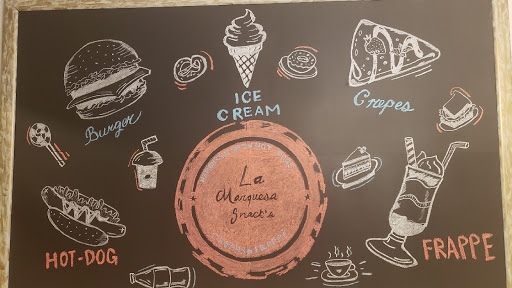 ICE
CREAM
Burger
Crepes
La
Marquesa
Snack's
HOT-DOG
FRAPPE